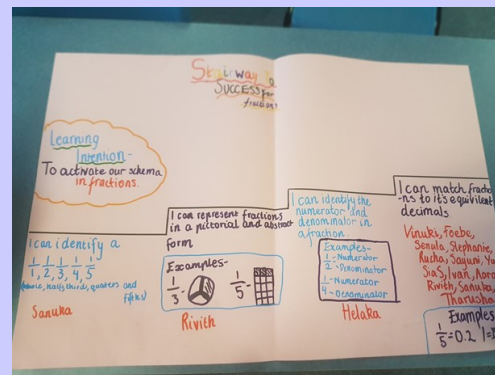 Stairway to
SUCCESS for
fractions
Learning
Intention-
To activate our schema
in fractions.
I can identify a
1/1, 1/2, 1/3, 1/4, 1/5
(whole, half, thirds, quaters and
fifths)
Sanuka
I can represent fractions
in a pictorial and abstract
form
Examples-
1/3 - 1/5 -
Rivith
I can identify the
numerator and
denominator in
a fraction.
Examples-
1 - Numerator
2 - Denominator
1 - Numerator
4 - Denominator
Helaka
I can match fractio
-ns to it's equivilent
decimals
Vinuki, Foebe,
Senula, Stephanie,
Rucha, Sayuni,
Sias, Ivan,
Rivith, Sanuka,
Tharusha
Examples
1/5=0.2